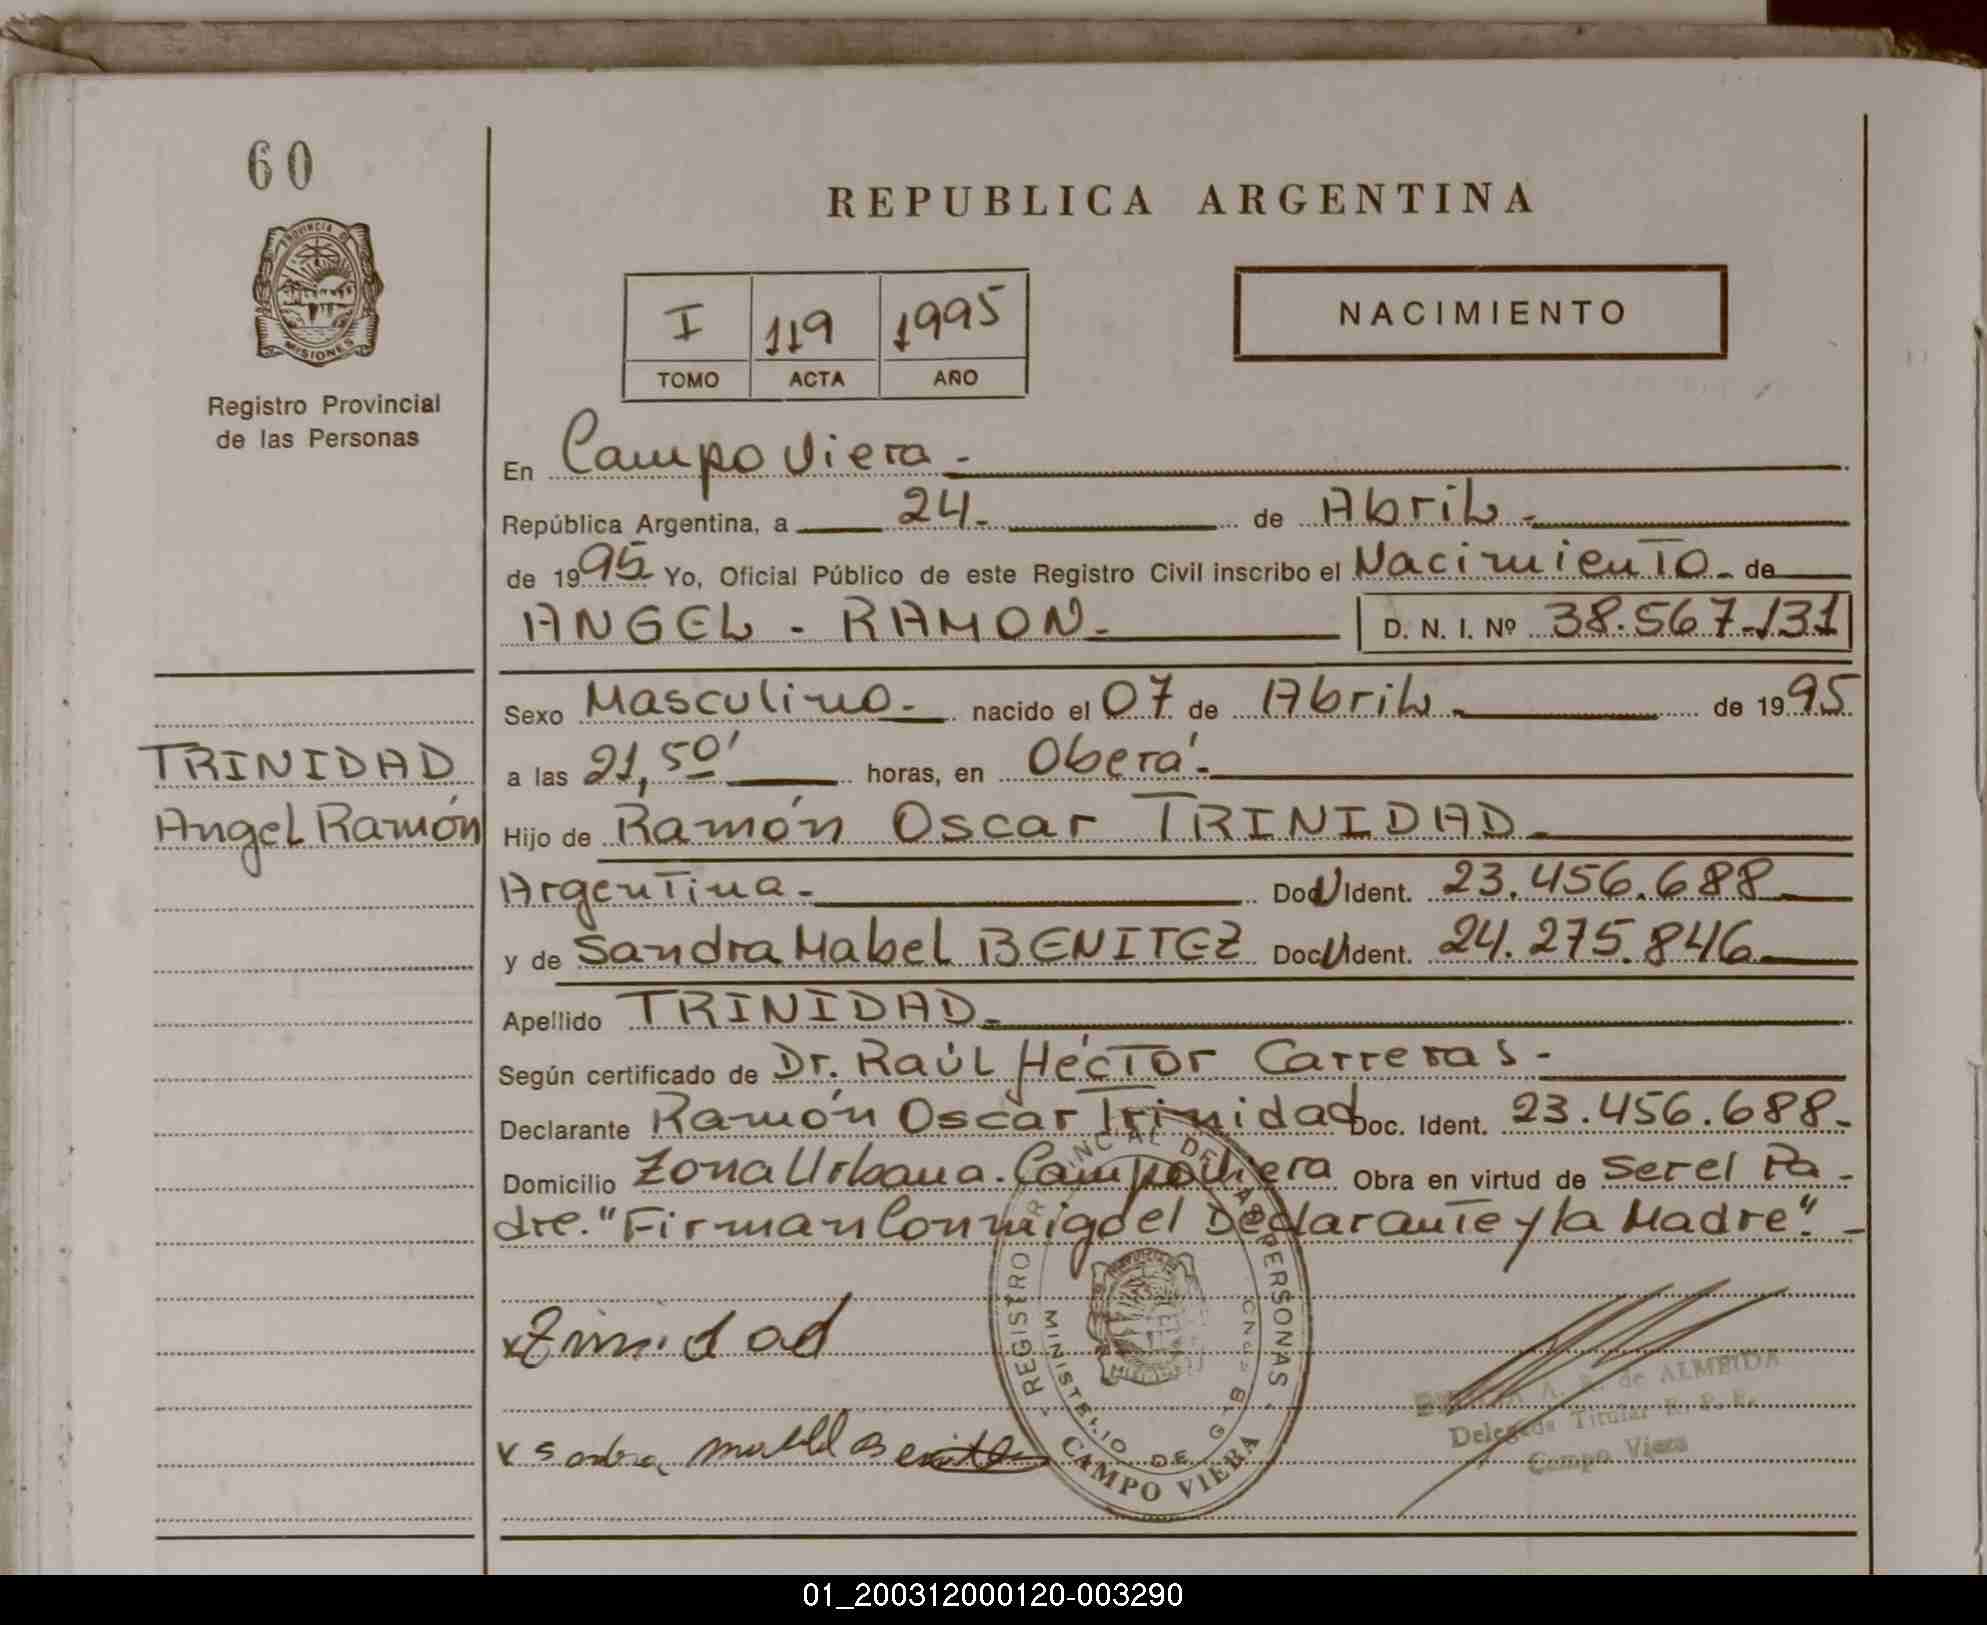 60
REPUBLICA ARGENTINA
PROVINCIA DE
MISIONES
I 119 1995
TOMO ACTA AÑO
NACIMIENTO
Registro Provincial
de las Personas
En Campo Viera -
República Argentina, a 24- de Abril -
de 1995 Yo, Oficial Público de este Registro Civil inscribo el Nacimiento - de
ANGEL - RAMON - D. N. I. Nº 38.567.131
Sexo Masculino - nacido el 07 de Abril - de 1995
TRINIDAD
a las 21,50' horas, en Oberá -
Angel Ramón
Hijo de Ramón Oscar TRINIDAD -
Argentina - Doc U Ident. 23.456.688
y de Sandra Mabel BENITEZ Doc U Ident. 24.275.846
Apellido TRINIDAD -
Según certificado de Dr. Raúl Héctor Carreras -
Declarante Ramón Oscar Trinidad Doc. Ident. 23.456.688 -
Domicilio Zona Urbana. Campo Viera Obra en virtud de Ser el Pa -
dre. "Firman Conmigo el Declarante y la Madre". -
x Trinidad
REGISTRO PROVINCIAL DE LAS PERSONAS
MINISTERIO DE GOB
CAMPO VIERA
A. de ALMEIDA
Delegada Titular R. P. P.
Campo Viera
x Sandra Mabel Benitez
01_200312000120-003290